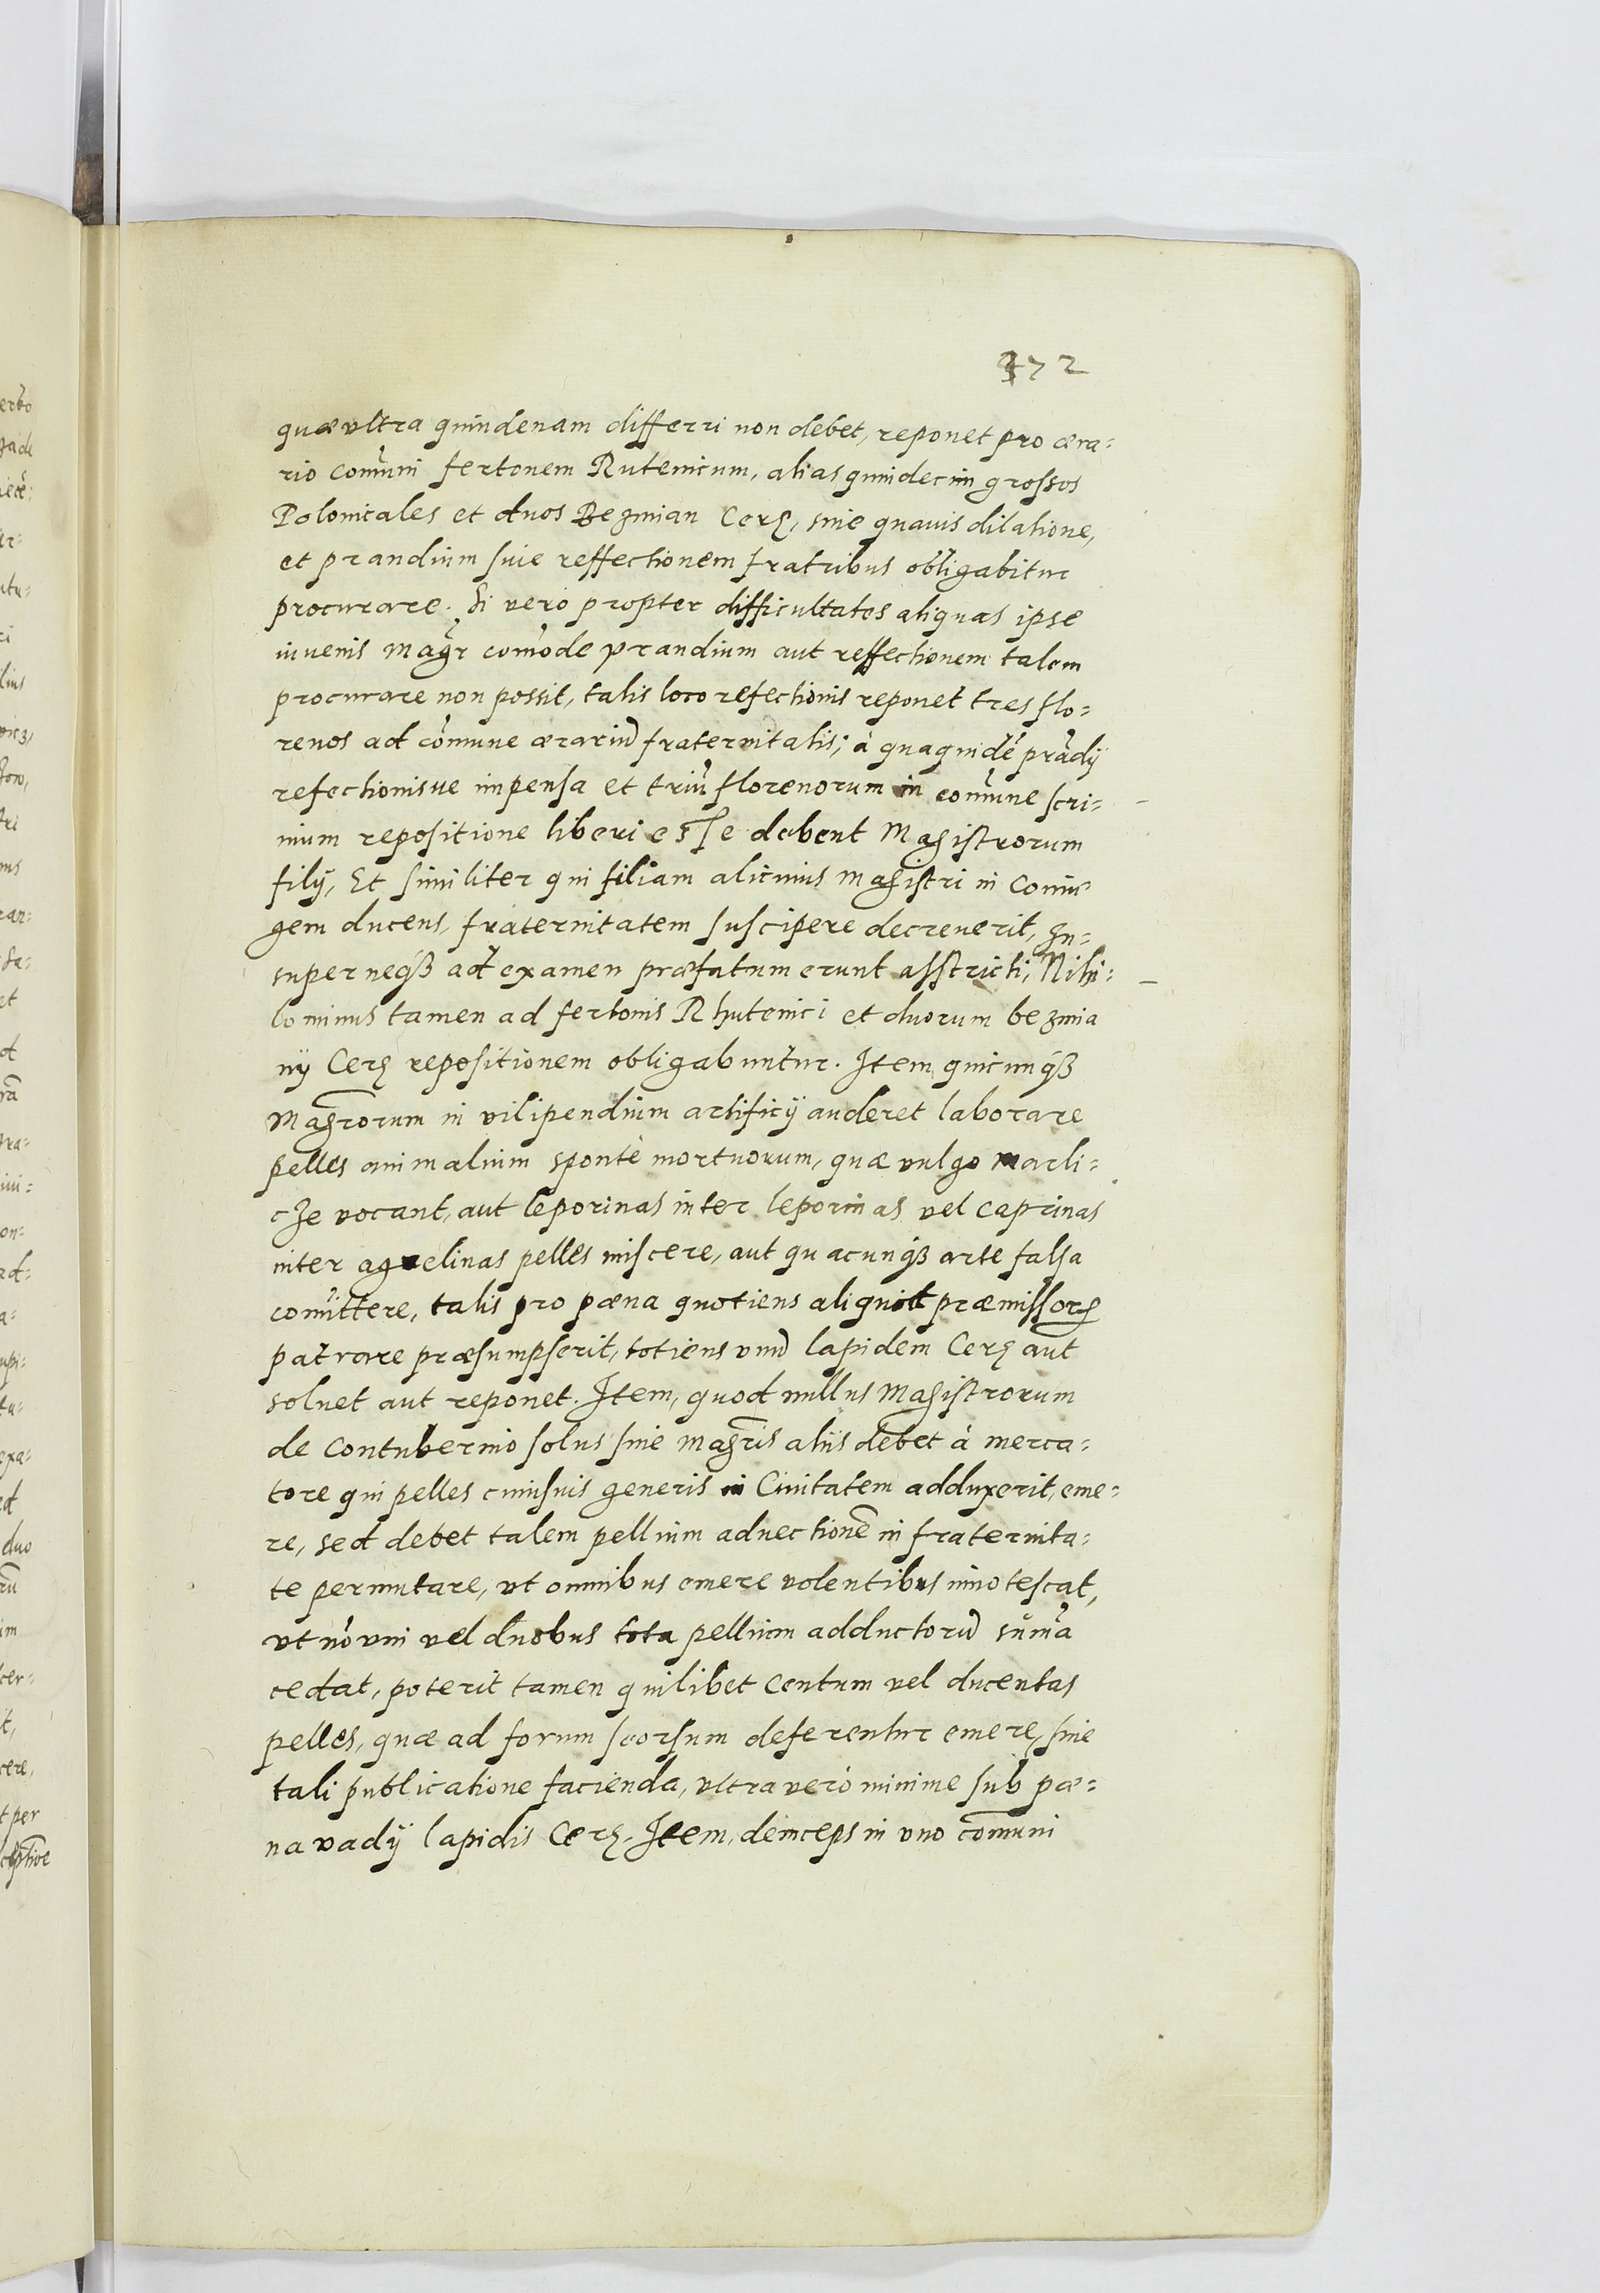 372
quæ vltra quindenam differri non debet, reponet pro æra=
rio comūni fertonem Rutenicum, alias quindecim grossos
Polonicales et duos Bezmian Ceræ, sine quauis dilatione,
et prandium siue reffectionem fratribus obligabitur
procurare. Si verò propter difficultates aliquas ipse
iuuenis Magr̃ comōde prandium aut reffectionem talem
procurare non possit, talis loco refectionis reponet tres flo=
renos ad cōmune ærariū fraternitatis; à qua quidē prādij
refectionisue impensa et triū florenorum in comūne scri=
nium repositione liberi esse debent Magistrorum
filij, Et similiter qui filiam alicuius Magistri in Coniu=
gem ducens, fraternitatem suscipere decreuerit, In=
super neqȝ ad examen præfatum erunt asstricti, Nihi=
lominus tamen ad fertonis Rhutenici et duorum bezmia
nÿ Ceræ repositionem obligabuntur. Item quicunqȝ
Magr̃orum in vilipendium artificij auderet laborare
pelles animalium spontè mortuorum, quæ vulgo marli=
cze vocant, aut leporinas inter leporinas vel caprinas
inter agnelinas pelles miscere, aut quacunqȝ arte falsa
comīttere, talis pro pæna quotiens aliquid præmissorꝝ
patrare præsumpserit, totiens vnū lapidem Ceræ aut
soluet aut reponet. Item, quod nullus Magistrorum
de Contubernio solus sine magr̃is alijs debet à merca=
tore qui pelles cuiusuis generis in Ciuitatem adduxerit, eme=
re, sed debet talem pellium aduectionē in fraternita=
te permutare, vt omnibus emere volentibus innotescat,
vt nō vni vel duobus tota pellium adductorū sūma
cedat, poterit tamen quilibet Centum vel ducentas
pelles, quæ ad forum seorsum deferentur emere, sine
tali publicatione facienda, vltra verò minime sub pæ=
na vadij lapidis Ceræ. Item, deinceps in vno com̃uni